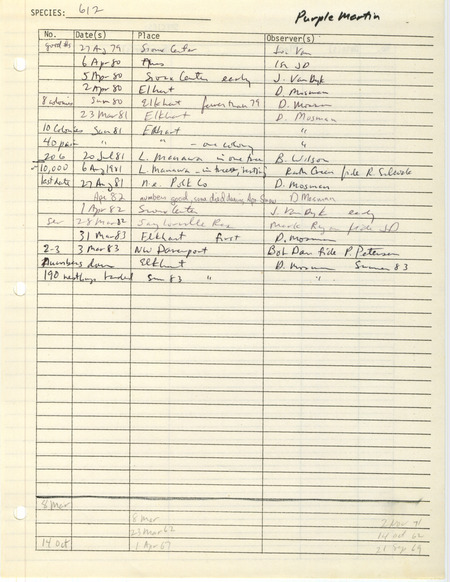 SPECIES: 612 Purple Martin
No. Date(s) Place Observer(s)
good #s 27 Aug 79 Sioux Center
6 Apr 80 Ames JD
5 Apr 80 Sioux Center early J. Van Dyk
2 Apr 80 Elkhart D. Mosman
8 colonies Sum 80 Elkhart fewer than 79 D. Mosman
23 Mar 81 Elkhart D. Mosman
10 colonies Sum 81 Elkhart "
40 pair " " - one colony "
206 20 Jul 81 L. Manawa in one tree B. Wilson
~10,000 6 Aug 1981 L. Manawa - in trees, nesting Ruth Green fide R. Silcock
last date 27 Aug 81 n.e. Polk Co D. Mosman
Apr 82 numbers good, some died during Apr snow D Mosman
1 Apr 82 Sioux Center J. Van Dyk early
28 Mar 82 Saylorville Res Mark fide JD
31 Mar 83 Elkhart first D. Mosman
2-3 3 Mar 83 NW Davenport Bob Dau fide P. Petersen
numbers down Elkhart D. Mosman Summer 83
190 nestlings banded Sum 83 " "
8 Mar
8 Mar 2 Nov 71
23 Mar 62 14 Oct 62
14 Oct 1 Apr 67 21 Sep 69